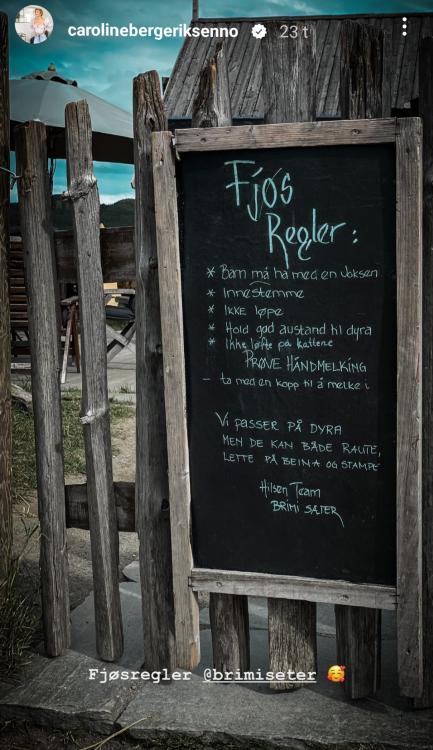 carolinebergeriksenno 23 t
Fjøs
Regler:
* Barn må ha med en Voksen
* Innestemme
* Ikke løpe
* Hold god avstand til dyra
* Ikke løfte på kattene
PRØVE HÅNDMELKING
- ta med en kopp til å melke i
Vi passer på DYRA
MEN DE KAN BÅDE RAUTE,
LETTE PÅ BEINA OG STAMPE
Hilsen Team
BRIMI SÆTER
Fjøsregler @brimiseter 🥰